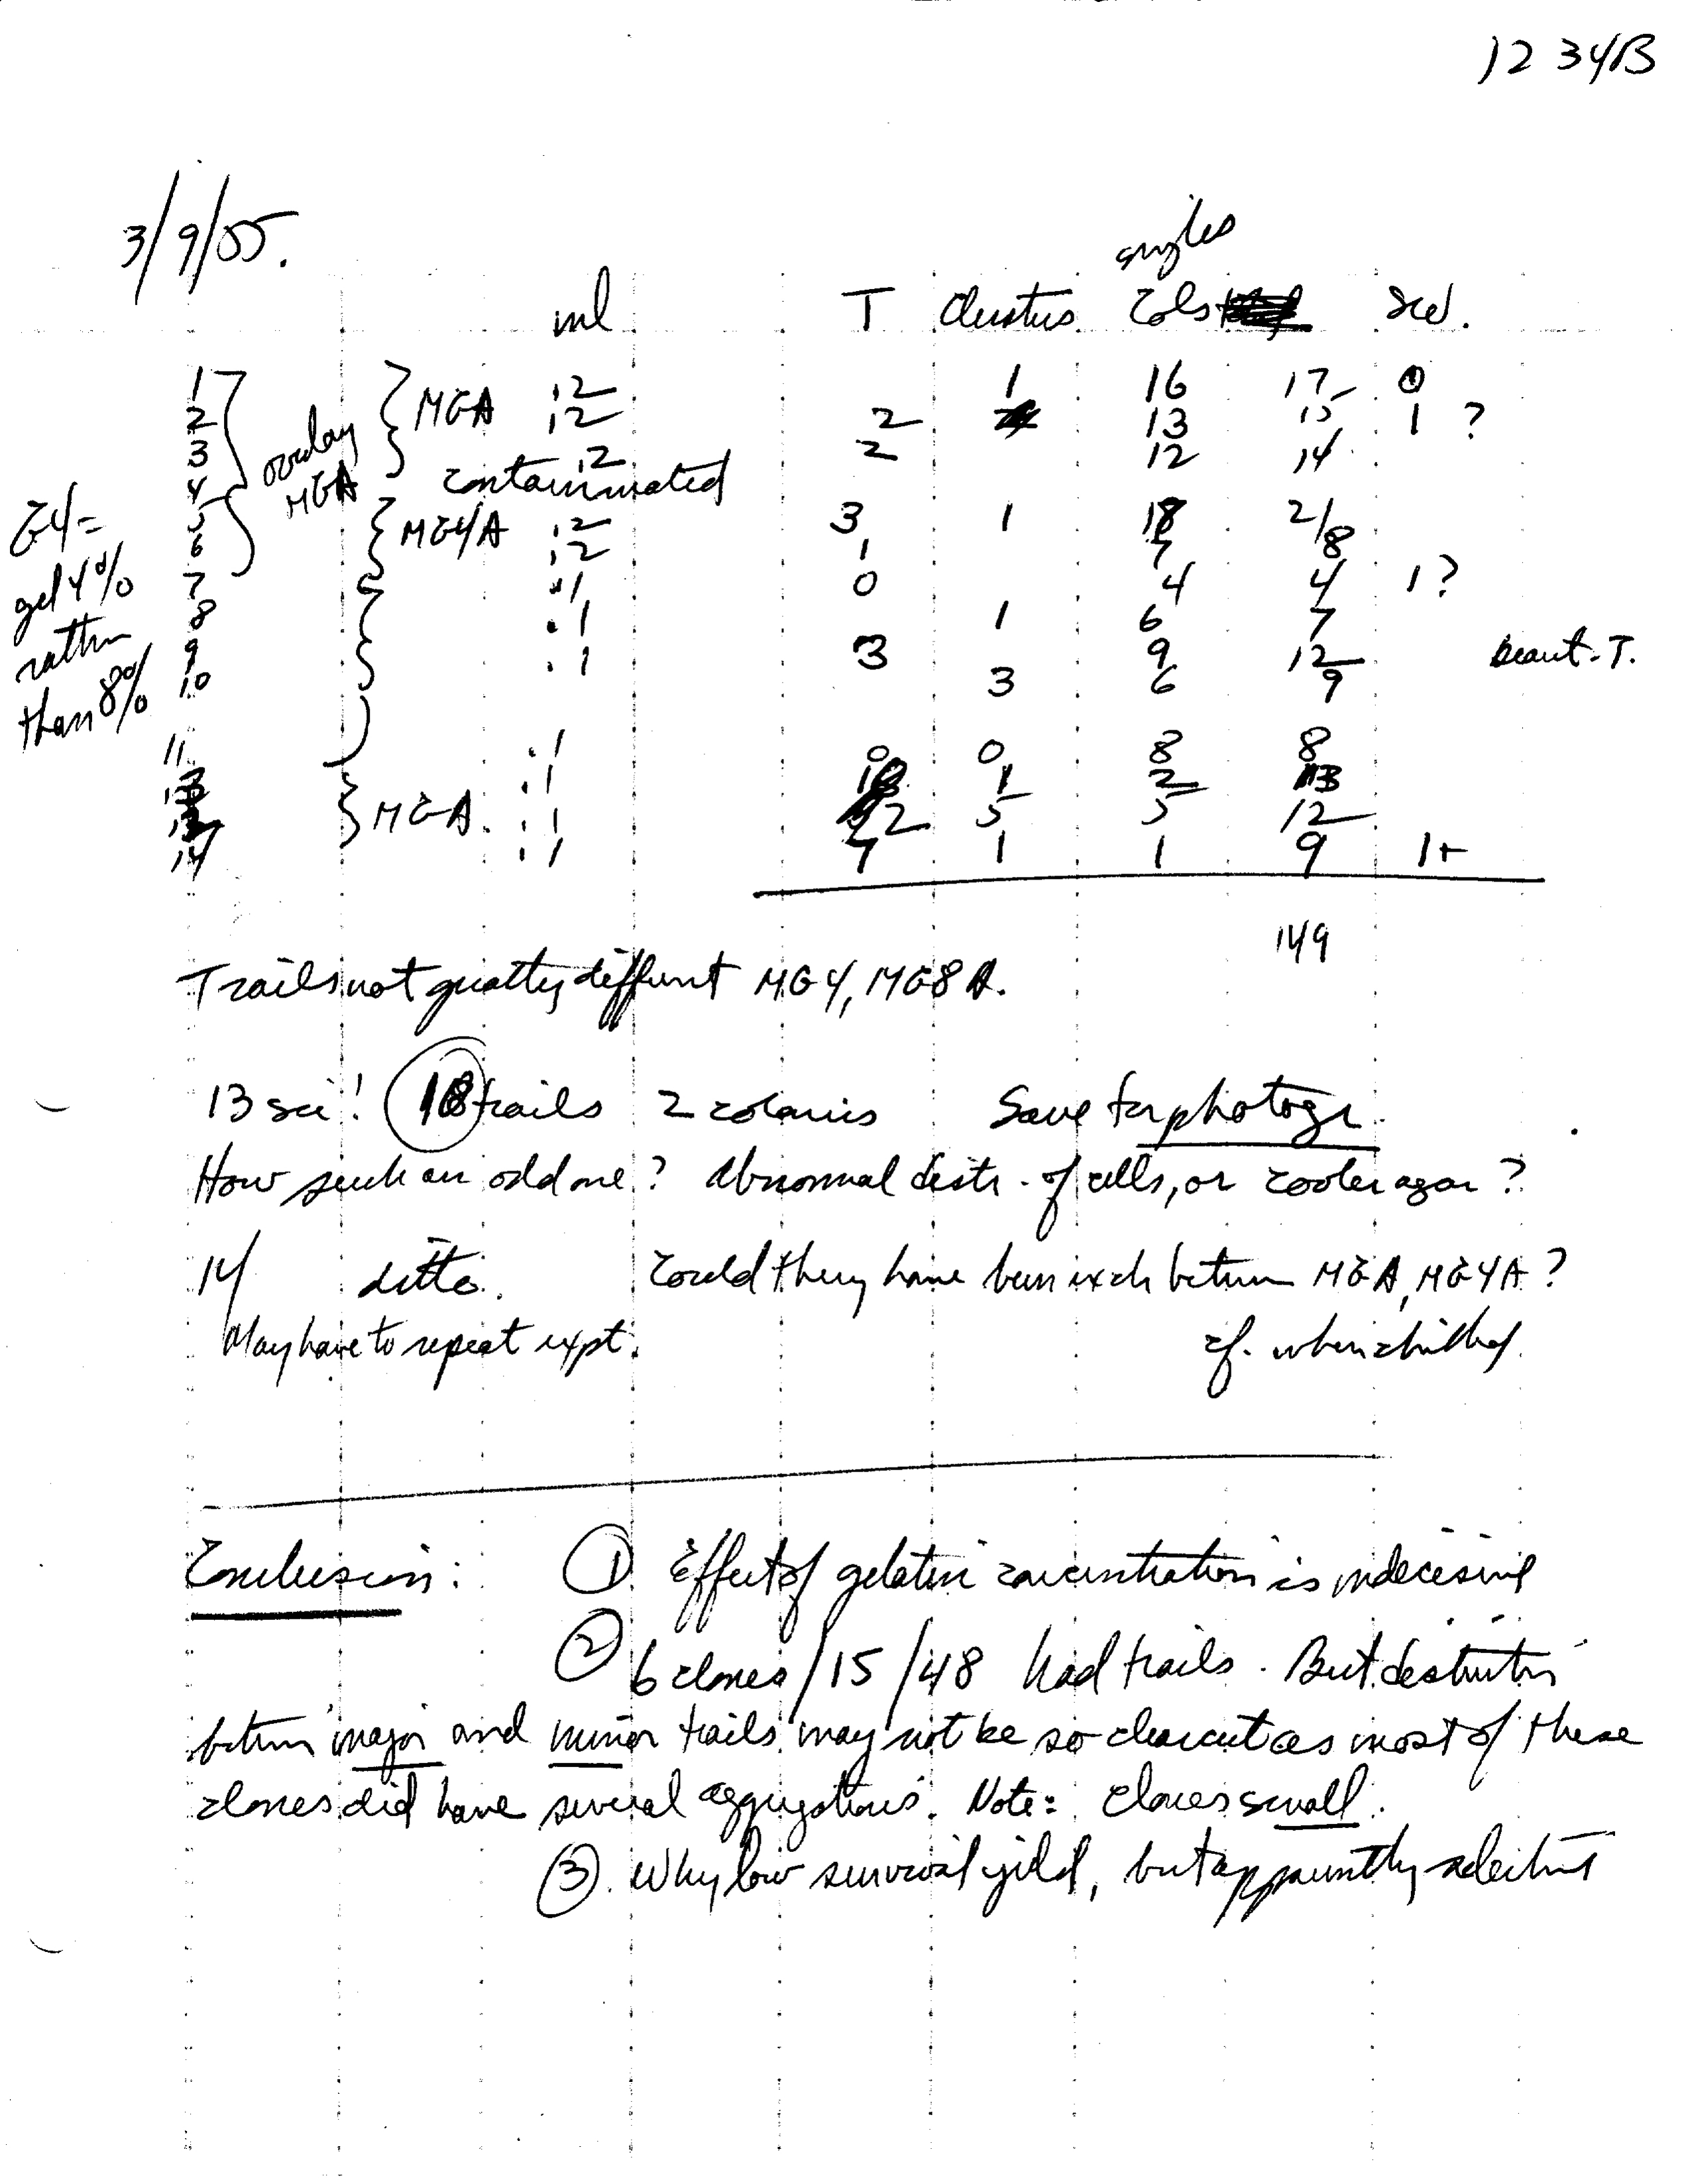 1234B
3/9/55.
singles
ml T Clusters Cols Swl.
1 MGA .2 1 16 17 0
2 .2 2 13 15 1 ?
3 .2 2 12 14
overlay MGA
4 contaminated
5 MG4A .2 3 1 18 21
6 .2 1 7 8
7 .1 0 4 4 1?
8 .1 1 6 7
9 .1 3 9 12 beaut. T.
10 3 6 9
G4 =
gel 4%
rather
than 8%
11 .1 0 0 8 8
.1 10 1 2 13
MGA .1 2 5 5 12
14 .1 7 1 1 9 1+
149
Trails not greatly different MG4, MG8A.
13 sic! 10 trails 2 colonies Save for photogr.
How such an odd one? Abnormal distr. of cells, or cooler agar?
14 ditto. Could they have been exch between MGA, MG4A?
May have to repeat expt. cf. when chilled.
Conclusion: ① Effect of gelatin concentration is indecisive
② 6 clones/15/48 had trails. But distinction
between major and minor trails may not be so clearcut as most of these
clones did have several aggregations. Note: clones small.
③. Why low survival yield, but apparently selective